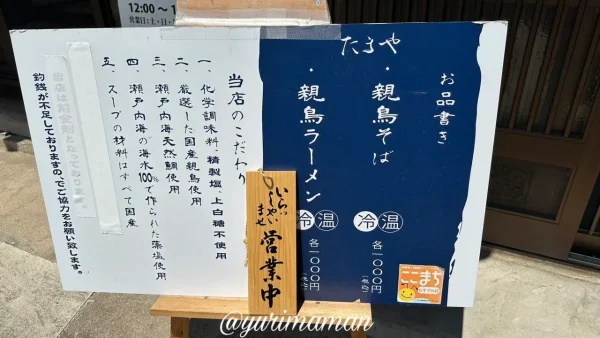 12:00 〜 1
営業日:土・日
たるや
お品書き
・親鳥そば
冷 温
各一〇〇〇円
(税込)
・親鳥ラーメン
冷 温
各一〇〇〇円
(税込)
当店のこだわり
一、化学調味料、精製塩、上白糖不使用
二、厳選した国産親鳥使用
三、瀬戸内海天然鯛使用
四、瀬戸内海の海水100%で作られた藻塩使用
五、スープの材料はすべて国産
当店は前金制となっております。
釣銭が不足しておりますので、ご協力をお願い致します。
いらっしゃいませ
営業中
ここまち
@yurimaman